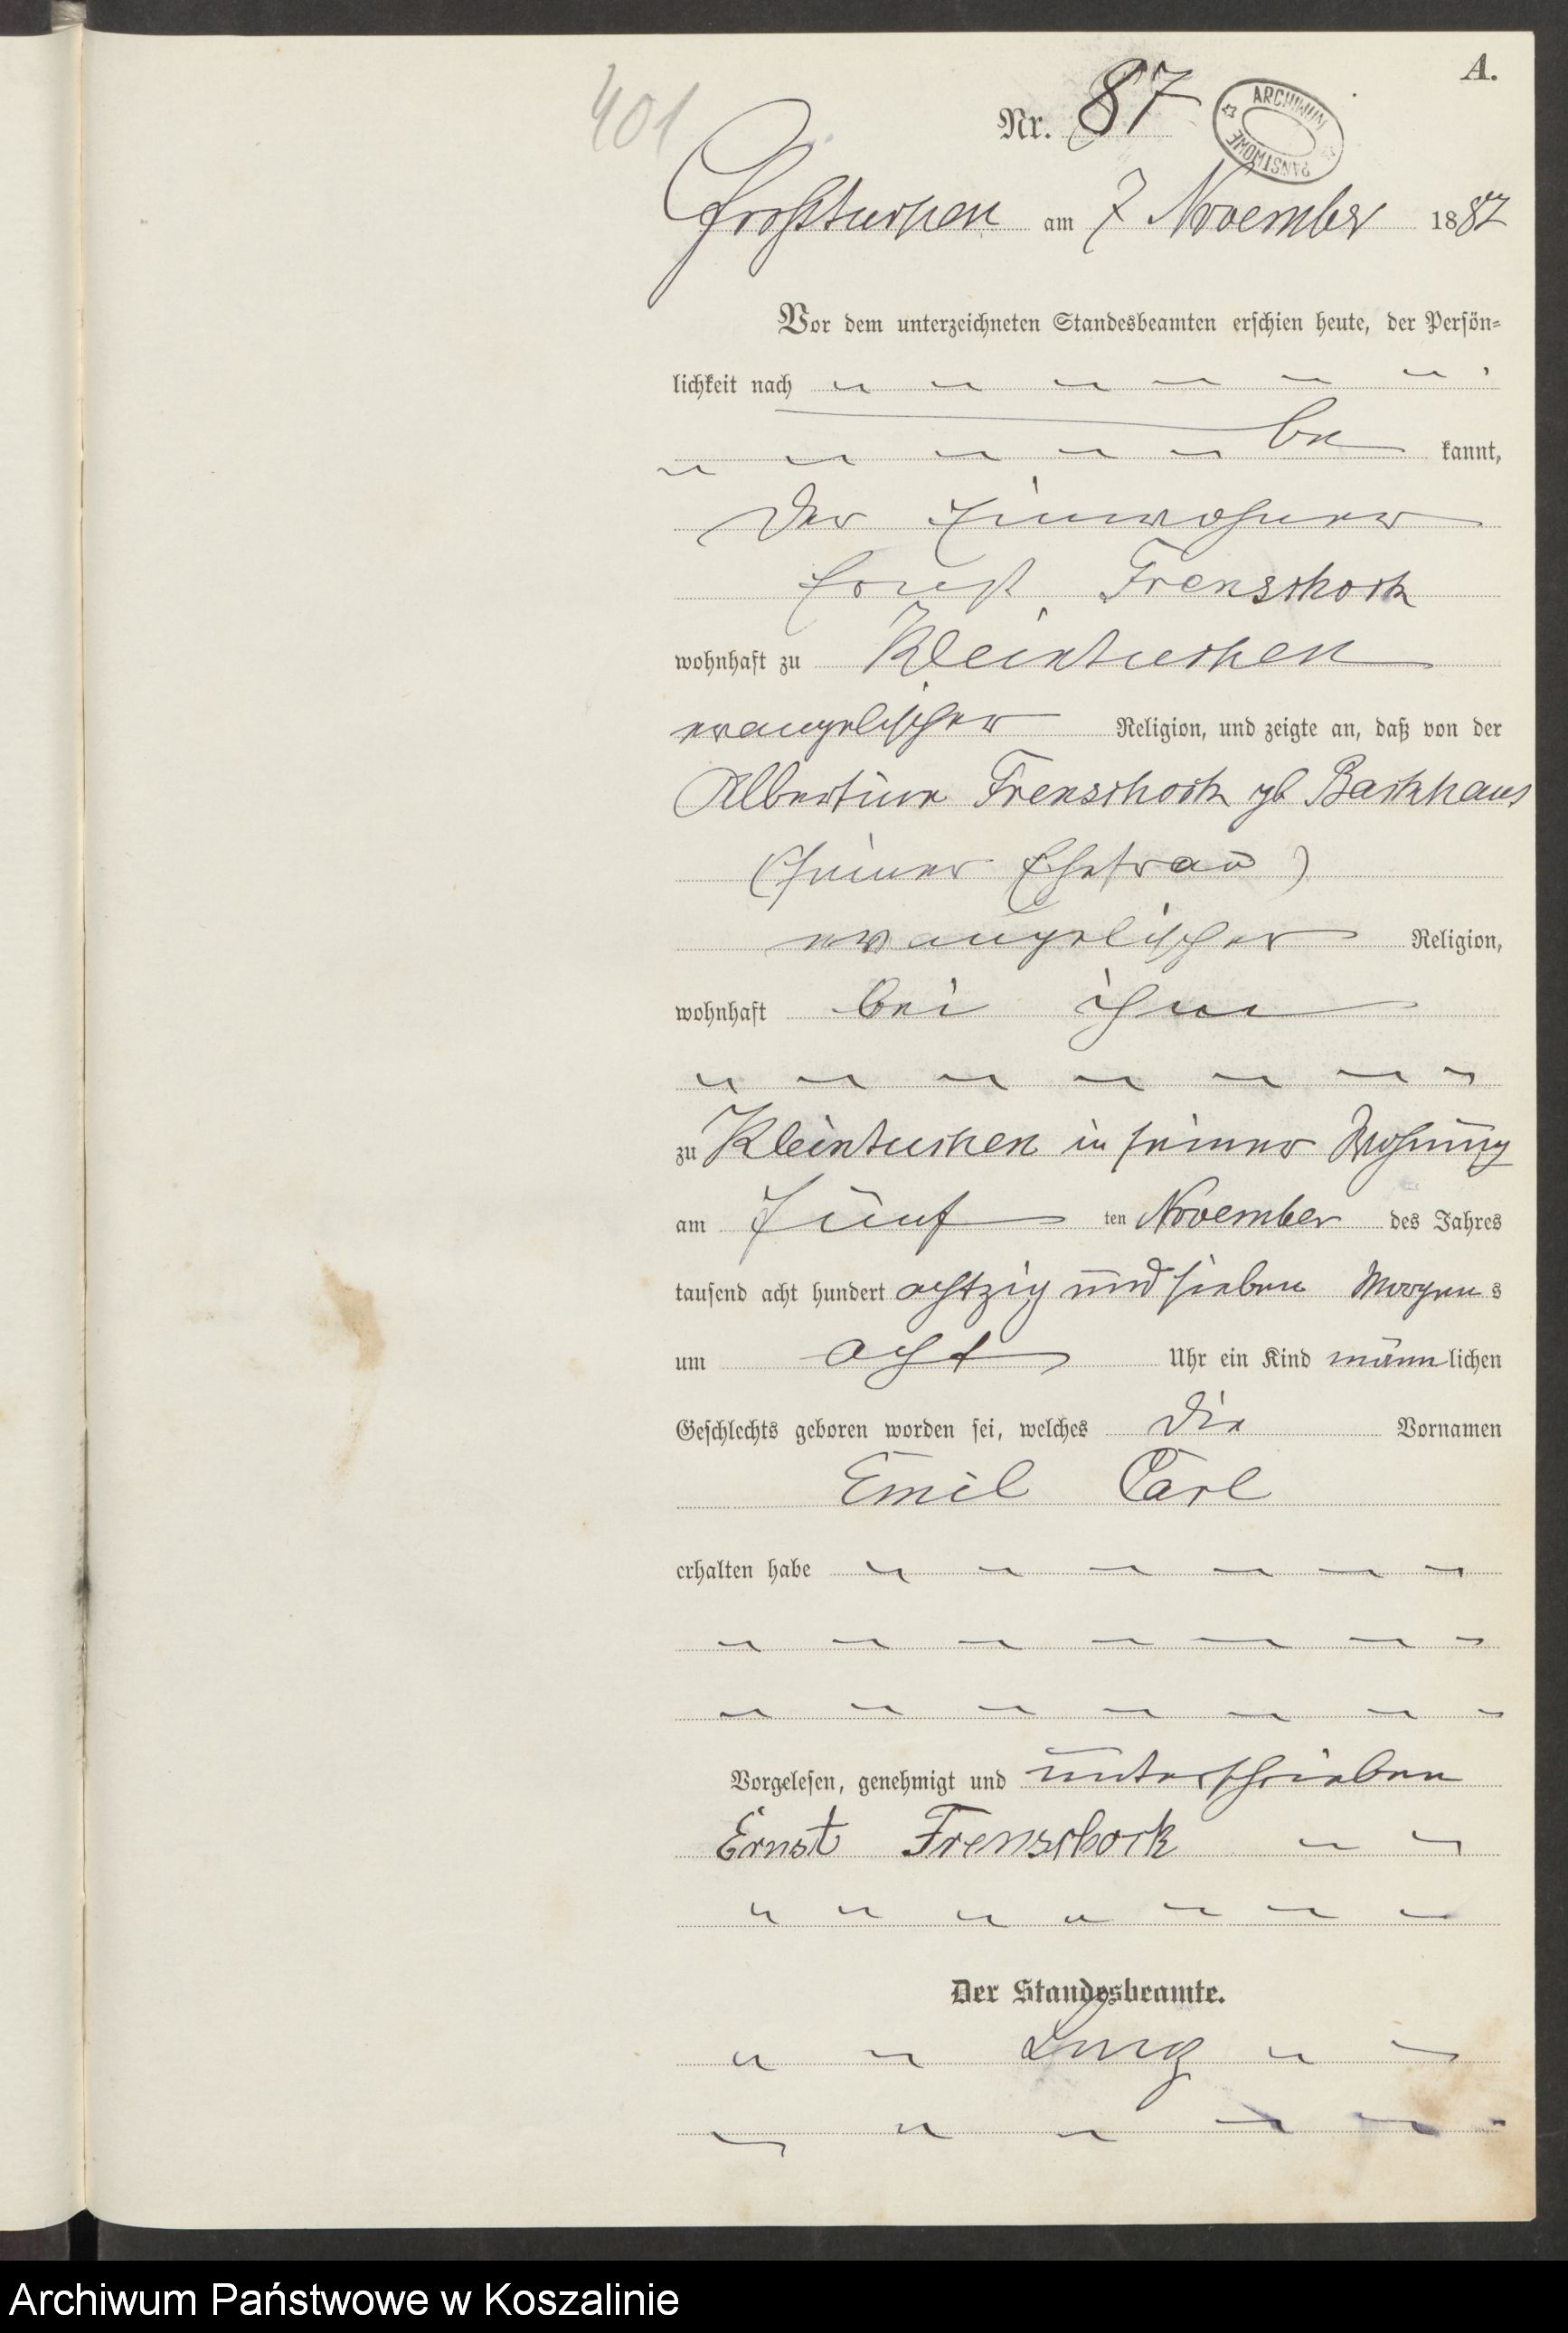 A.
401
Nr. 87
ARCHIWUM PAŃSTWOWE
Großtuchen am 7 November 1887
Vor dem unterzeichneten Standesbeamten erschien heute, der Persön=
lichkeit nach
be kannt,
der Einwohner
Ernst Frenschock
wohnhaft zu Kleintuchen
evangelischer Religion, und zeigte an, daß von der
Albertine Frenschock gb Backhaus
(seiner Ehefrau)
evangelischer Religion,
wohnhaft bei ihm
zu Kleintuchen in seiner Wohnung
am fünf ten November des Jahres
tausend acht hundert achtzig und sieben Morgens
um acht Uhr ein Kind männlichen
Geschlechts geboren worden sei, welches die Vornamen
Emil Carl
erhalten habe
Vorgelesen, genehmigt und unterschrieben
Ernst Frenschock
Der Standesbeamte.
Archiwum Państwowe w Koszalinie